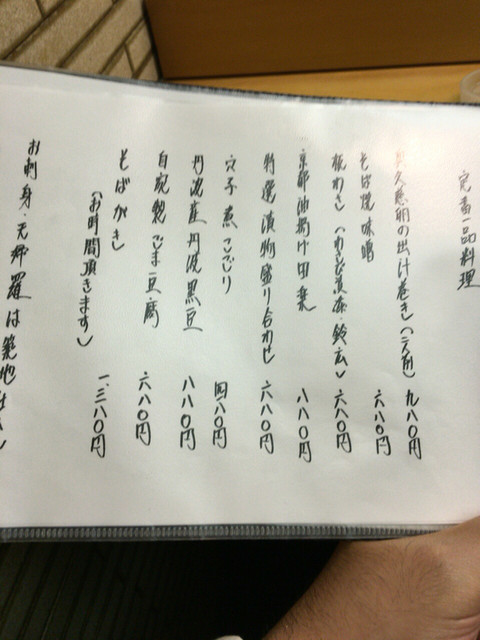 定番一品料理
奥久慈卵の出汁巻き(二人前) 九八〇円
そば焼味噌 六八〇円
板わさ(わさび漬添・鈴広) 六八〇円
京都油揚げ田楽 八八〇円
特選漬物盛り合わせ 六八〇円
穴子煮こごり 四八〇円
丹波産丹波黒豆 八八〇円
自家製ごま豆腐 六八〇円
そばがき
(お時間頂きます) 一、三八〇円
お刺身・天婦羅は築地